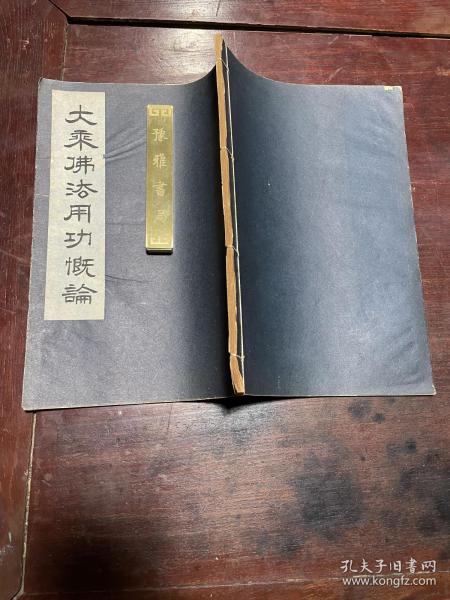 大乘佛法用功慨論
豫雅書房
孔夫子旧书网
www.kongfz.com